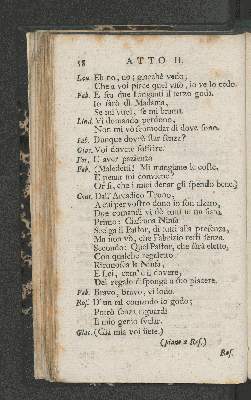 58 ATTO II.
Lau. Eh no, no; giacchè vedo,
Che a voi piace quel visò, io ve lo cedo.
Fab. E fra due litiganti il terzo goda.
Io sarò di Madama,
Se mi vuol, se mi brama.
Lind. Vi domando perdono,
Non mi vò scomodar di dove sono.
Fab. Dunque dovrò star senza?
Giac. Voi dovete soffrire.
Fir. E aver pazienza
Fab. (Maledetti! Mi mangiano le coste,
E penar mi conviene?
Or sì, che i miei denar gli spendo bene.)
Con. Dall' Arcadico Trono,
A cui per vostro dono io son alzato,
Due comandi vi dò tutti in un fiato.
Primo: Ciascuna Ninfa
Scelga il Pastor, di tutti alla presenza,
Ma non vò, che Fabrizio resti senza.
Secondo: Quel Pastor, che sarà eletto,
Con qualche regaletto
Riconosca la Ninfa,
E lei, com' è il dovere,
Del regalo disponga a suo piacere.
Fab. Bravo, bravo, vi lodo.
Ros. D' un tal comando io godo;
Potrò senza riguardi
Il mio genio svelar.
Giac. (Già mia voi siete.)
(piano a Ros.)
Ros.